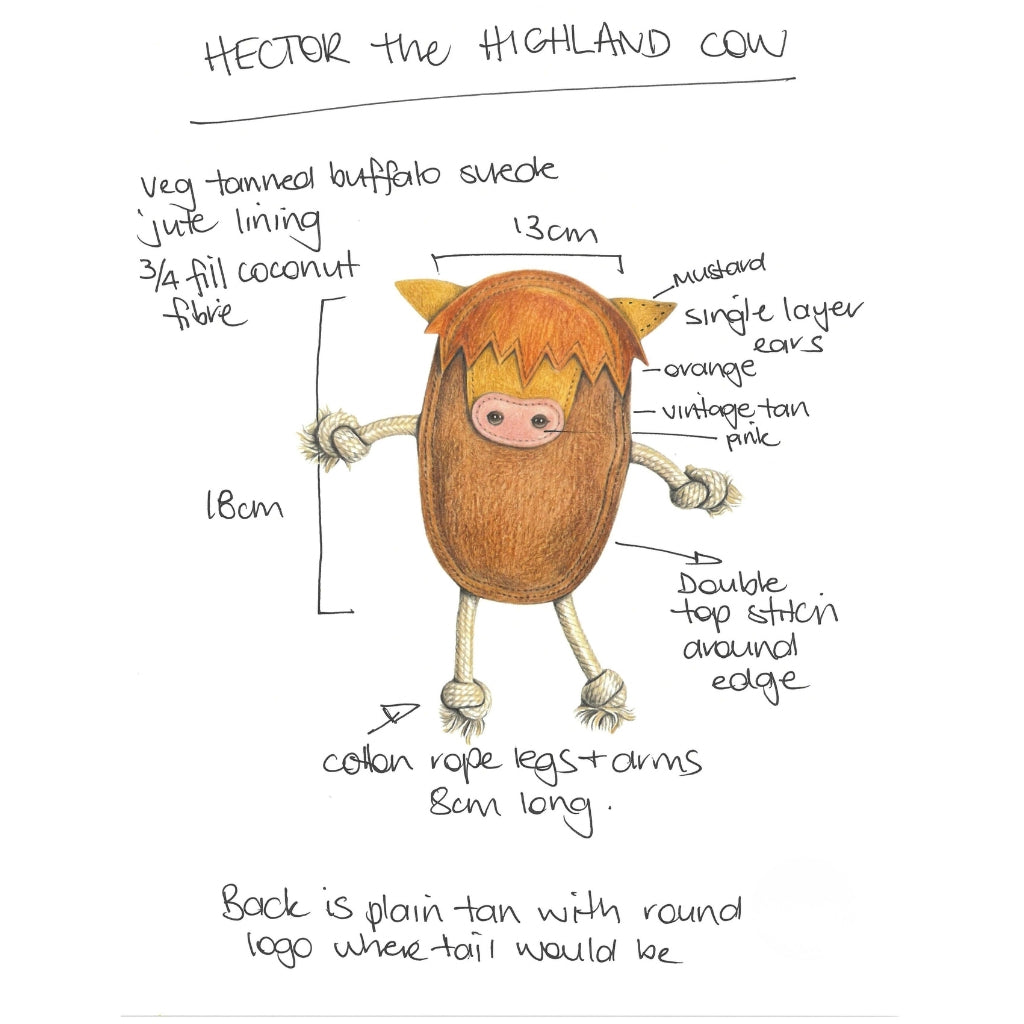 HECTOR the HIGHLAND COW
veg tanned buffalo suede
jute lining
3/4 fill coconut
fibre
13cm
mustard
single layer
ears
orange
vintage tan
pink
18cm
Double
top stitch
around
edge
cotton rope legs + arms
8cm long.
Back is plain tan with round
logo where tail would be